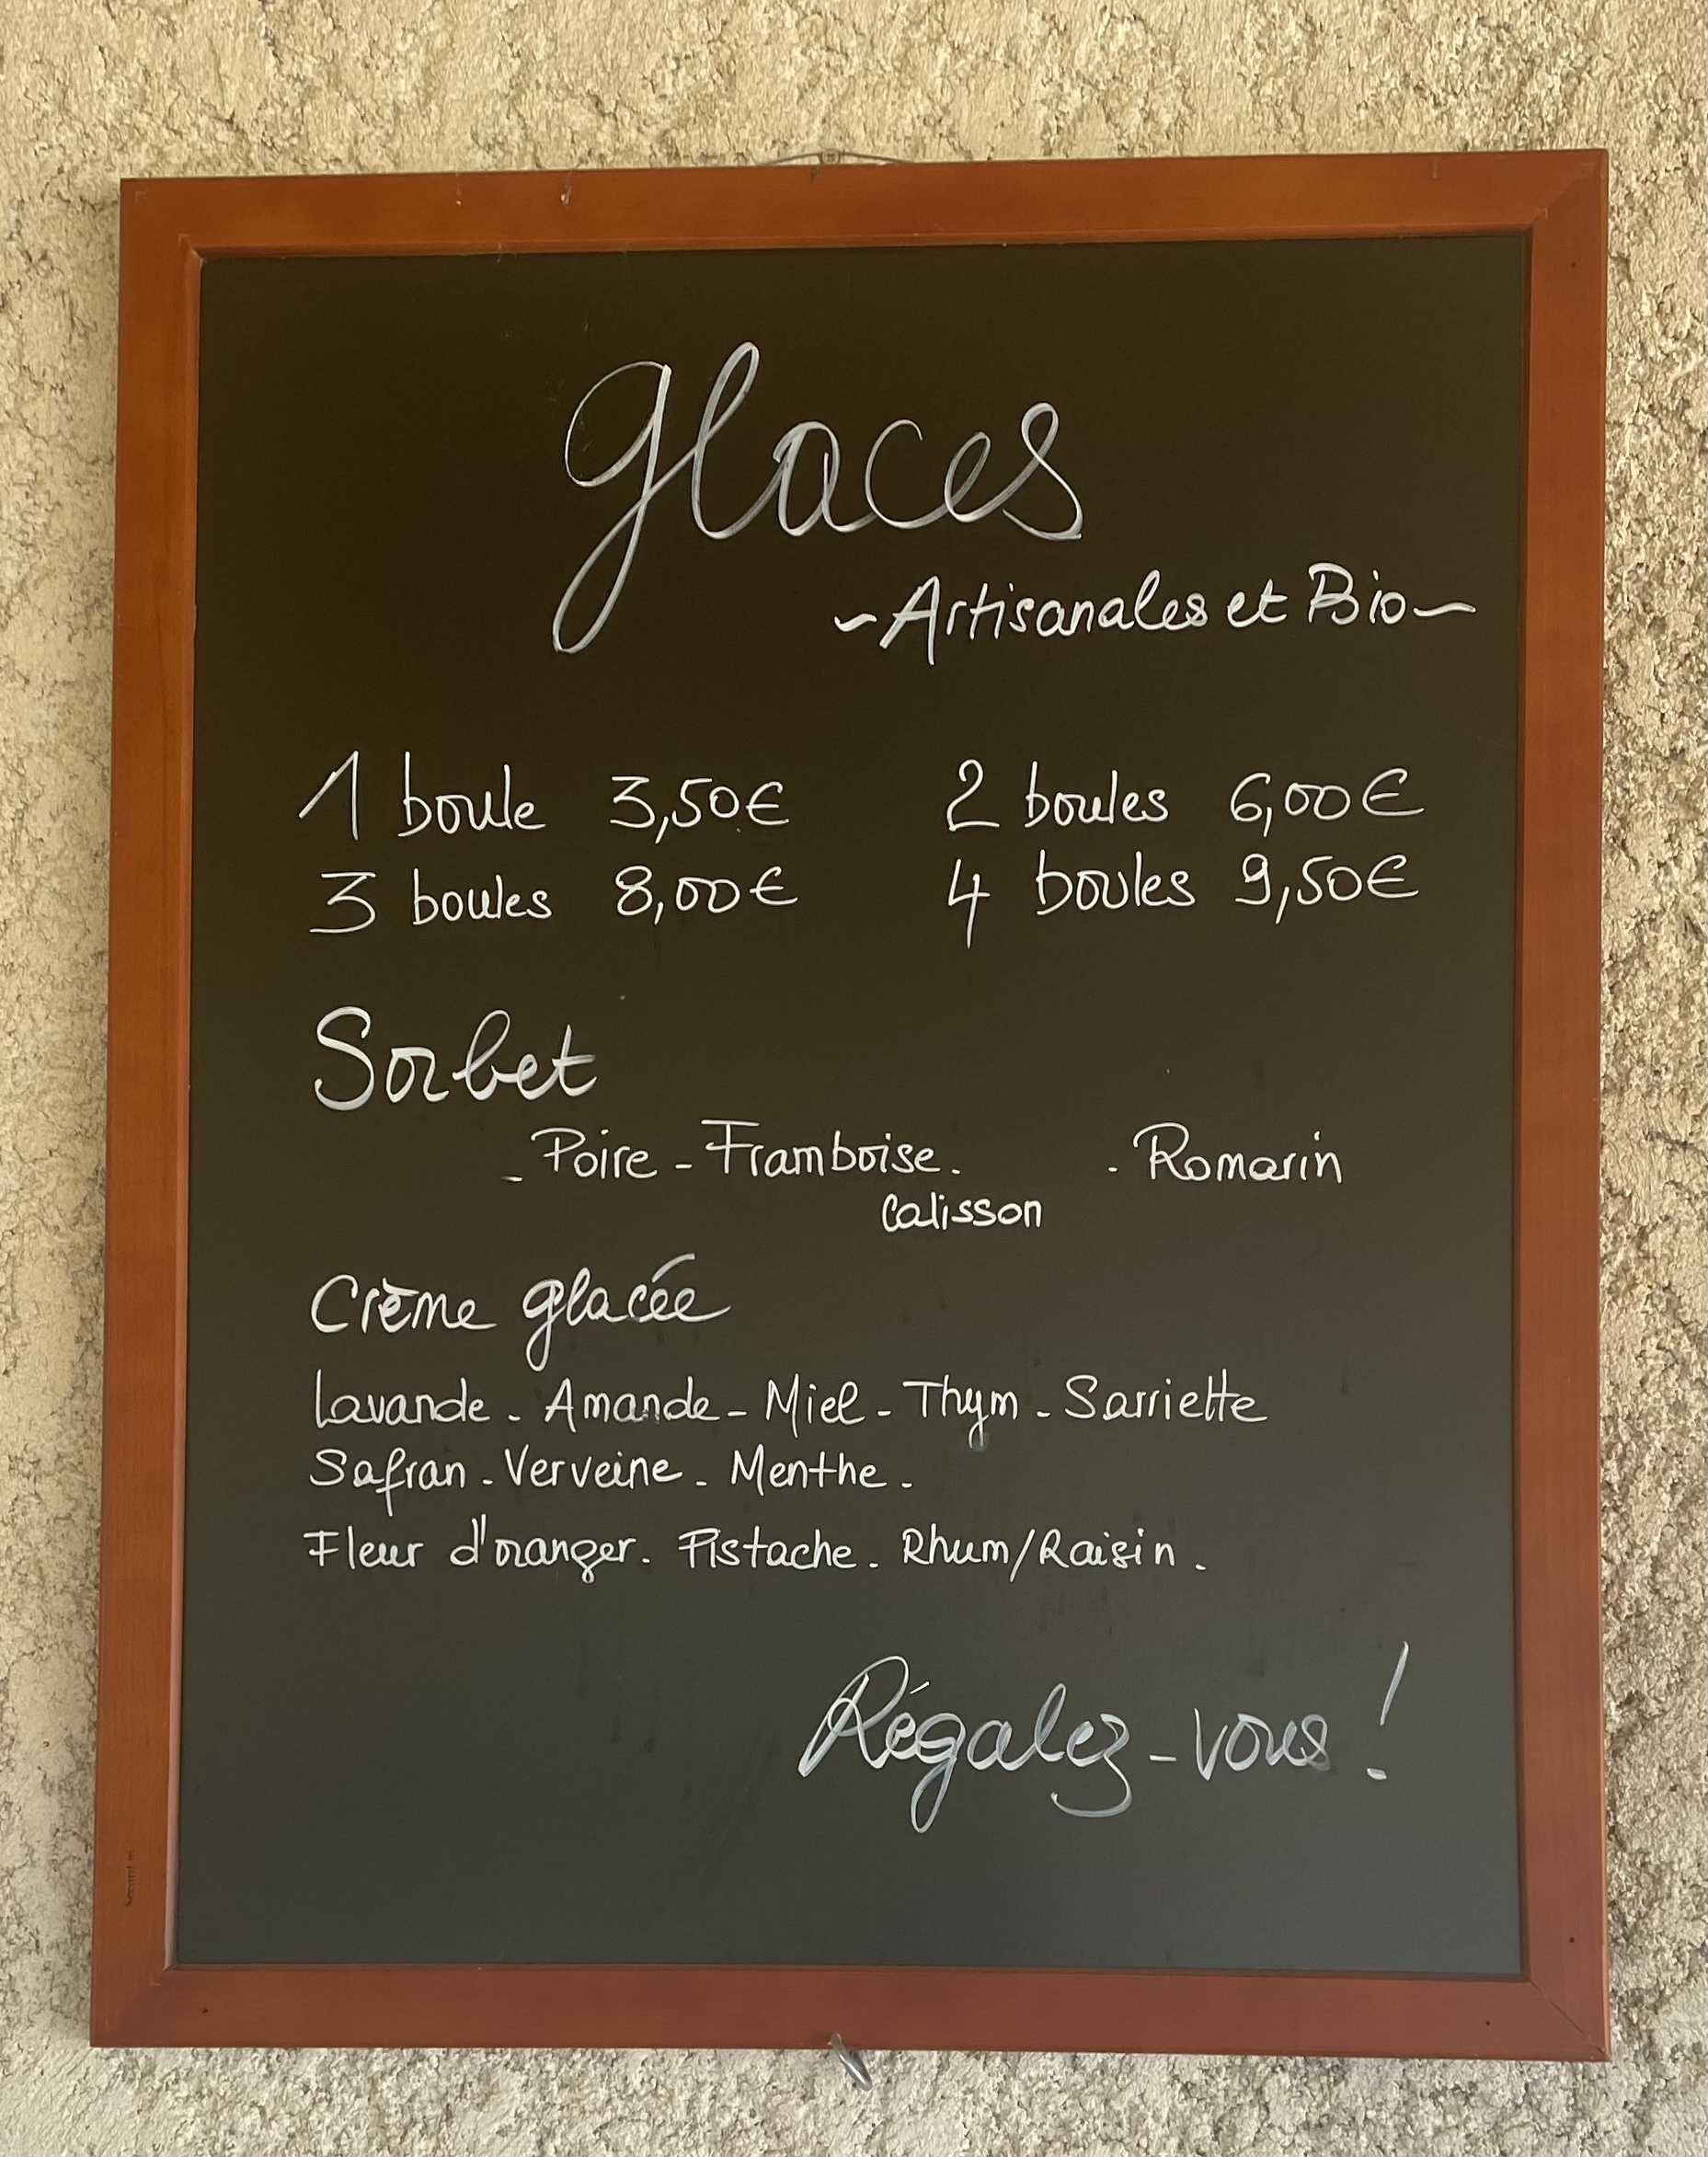 Glaces
~Artisanales et Bio~
1 boule 3,50€ 2 boules 6,00€
3 boules 8,00€ 4 boules 9,50€
Sorbet
- Poire - Framboise. . Romarin
Calisson
Crème glacée
Lavande - Amande - Miel - Thym - Sarriette
Safran - Verveine - Menthe.
Fleur d'oranger. Pistache. Rhum/Raisin.
Régalez-vous!